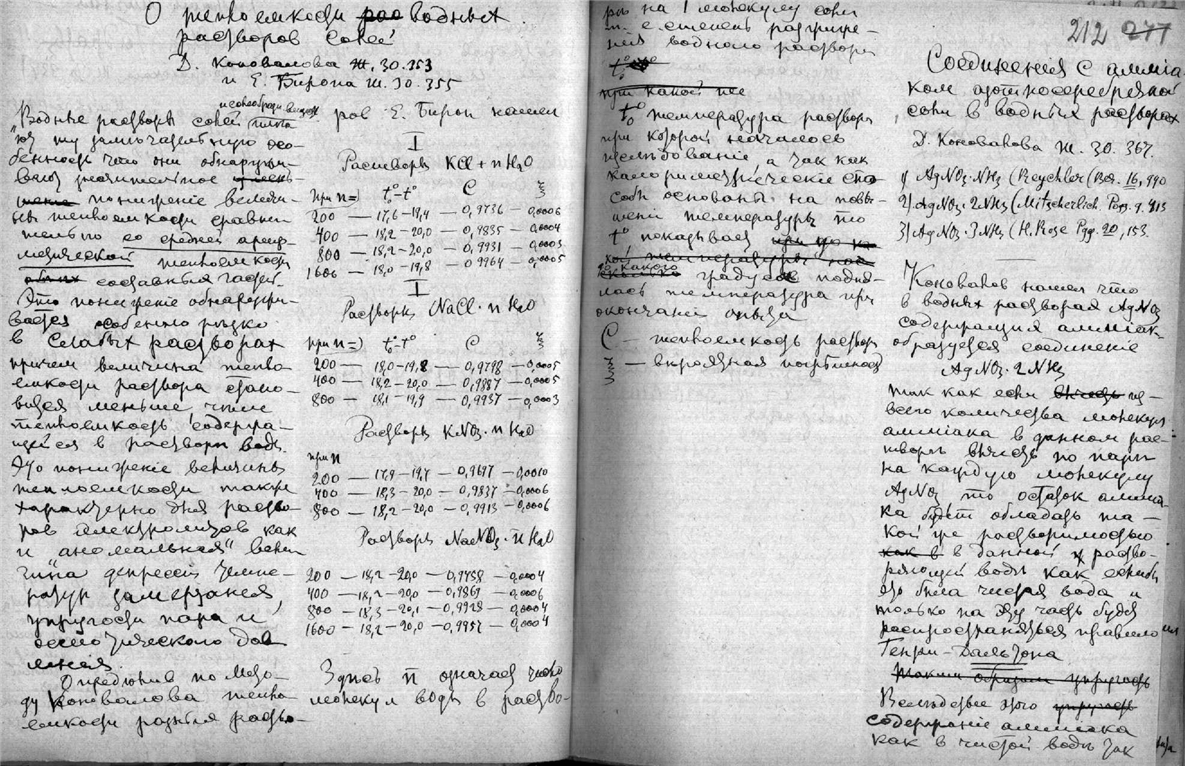 О теплоемкости водных
растворов солей
Д. Коновалова Ж. 30.353
и Е. Бирона Ж. 30.355
Водные растворы солей
ют ту замечательную осо-
бенность что они обнаружи-
вают значительное
понижение величи-
ны теплоемкости сравни-
тельно со средней ариф-
метической теплоемкости
составных частей.
Это понижение обнаружи-
вается особенно резко
в слабых растворах
причем величина тепло-
емкости раствора стано-
вится меньше чем
теплоемкость содержа-
щейся в растворе воды.
Это понижение величины
теплоемкости также
характерно для раство-
ров электролитов как
и "аномальная" вели-
чина депрессии темпе-
ратур замерзания,
упругости пара и
осмотического дав
ления.
Определив по мето-
ду Коновалова тепло-
емкости разных раство-
ров Е. Бирон нашел
I
Растворы KCl + n H2O
при n = t°0 – t° C ξ
200 — 17,6 – 19,4 — 0,9736 — 0,0006
400 — 18,2 – 20,0 — 0,9835 — 0,0004
800 — 18,2 – 20,0 — 0,9931 — 0,0003
1600 — 18,0 – 19,8 — 0,9964 — 0,0005
I
Растворы NaCl · n H2O
при n = t°0 – t° C ξ
200 — 18,0 – 19,8 — 0,9798 — 0,0005
400 — 18,2 – 20,0 — 0,9887 — 0,0005
800 — 18,1 – 19,9 — 0,9937 — 0,0003
Растворы KNO3 · n H2O
при n
200 — 17,9 – 19,7 — 0,9697 — 0,0010
400 — 18,3 – 20,0 — 0,9837 — 0,0006
800 — 18,2 – 20,0 — 0,9913 — 0,0006
Растворы NaNO3 · n H2O
200 — 18,2 – 20,0 — 0,9738 — 0,0004
400 — 18,2 – 20,0 — 0,9869 — 0,0006
800 — 18,3 – 20,1 — 0,9928 — 0,0004
1600 — 18,2 – 20,0 — 0,9957 — 0,0004
Здесь n означает число
молекул воды в раство-
ре на 1 молекулу соли
т. е. степень разжиже-
ния водного раствора
t°0 температура раствора
при которой началось
исследование, а так как
калориметрические спо-
собы основаны на повы-
шении температуры то
t° показывает
до какого градуса подня-
лась температура при
окончании опыта
C — теплоемкость раствора
ξ — вероятная погрешность
212 277
Соединения с аммиа-
ком азотнокосеребряной
соли в водных растворах
Д. Коновалова Ж. 30. 367.
1) AgNO3·NH3 (Reychler (Ber. 16, 990
2) AgNO3·2NH3 (Mitscherlich Pogg. 9. 413
3) AgNO3·3NH3 (H. Rose Pogg. 20, 153.
Коновалов нашел что
в водных растворах AgNO3
содержащих аммиак
образуется соединение
AgNO3·2NH3
так как если из
всего количества молекул
аммиака в данном рас-
творе вычесть по паре
на каждую молекулу
AgNO3 то остаток аммиа-
ка будет обладать та-
кой же растворимостью
в данной раство-
ряющей воде как если бы
это была чистая вода и
только на эту часть будет
распространяться правило
Генри-Дальтона
Таким образом упругость
Вследствие этого
содержание аммиака
как в чистой воде так